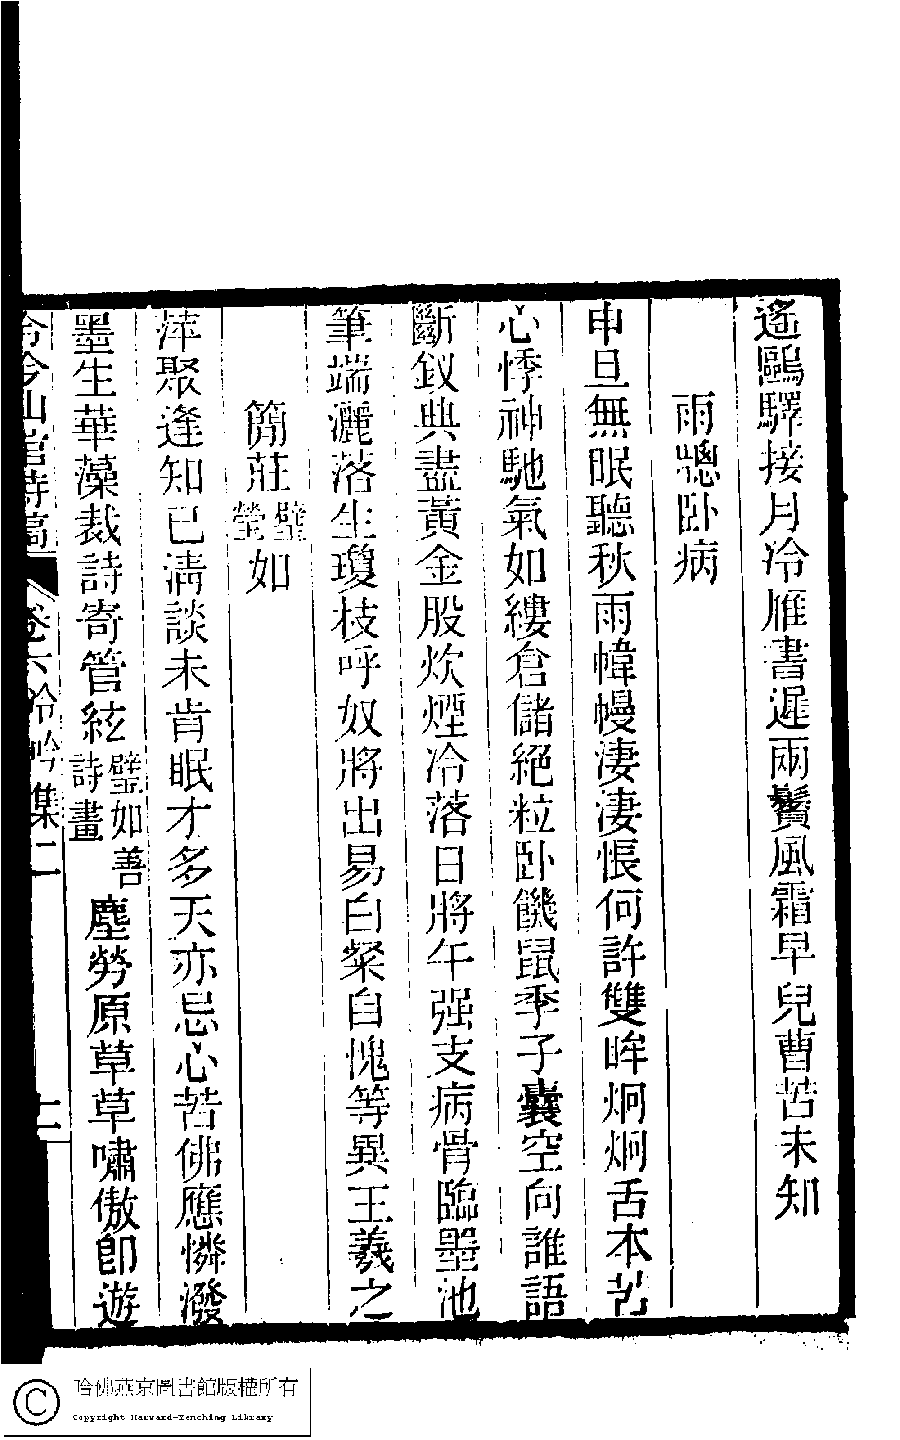 遙鷗驛接月冷雁書遲兩鬢風霜早兒曹苦未知
雨牕卧病
申旦無眠聽秋雨幃幔淒淒悵何許雙眸炯炯舌本苦
心悸神馳氣如縷倉儲絕粒卧饑鼠季子囊空向誰語
斷釵典盡黃金股炊煙冷落日將午强支病骨臨墨池
筆端灑落生瓊枝呼奴將出易白粲自愧等異王羲之
簡莊璧瑩如
萍聚逢知已淸談未肯眠才多天亦忌心苦佛應憐潑
墨生華藻裁詩寄管絃璧如善詩畫塵勞原草草嘯傲卽遊
泠泠山館詩稿 卷六泠吟集二 十一
哈佛燕京圖書館版權所有
Copyright Harvard-Yenching Library